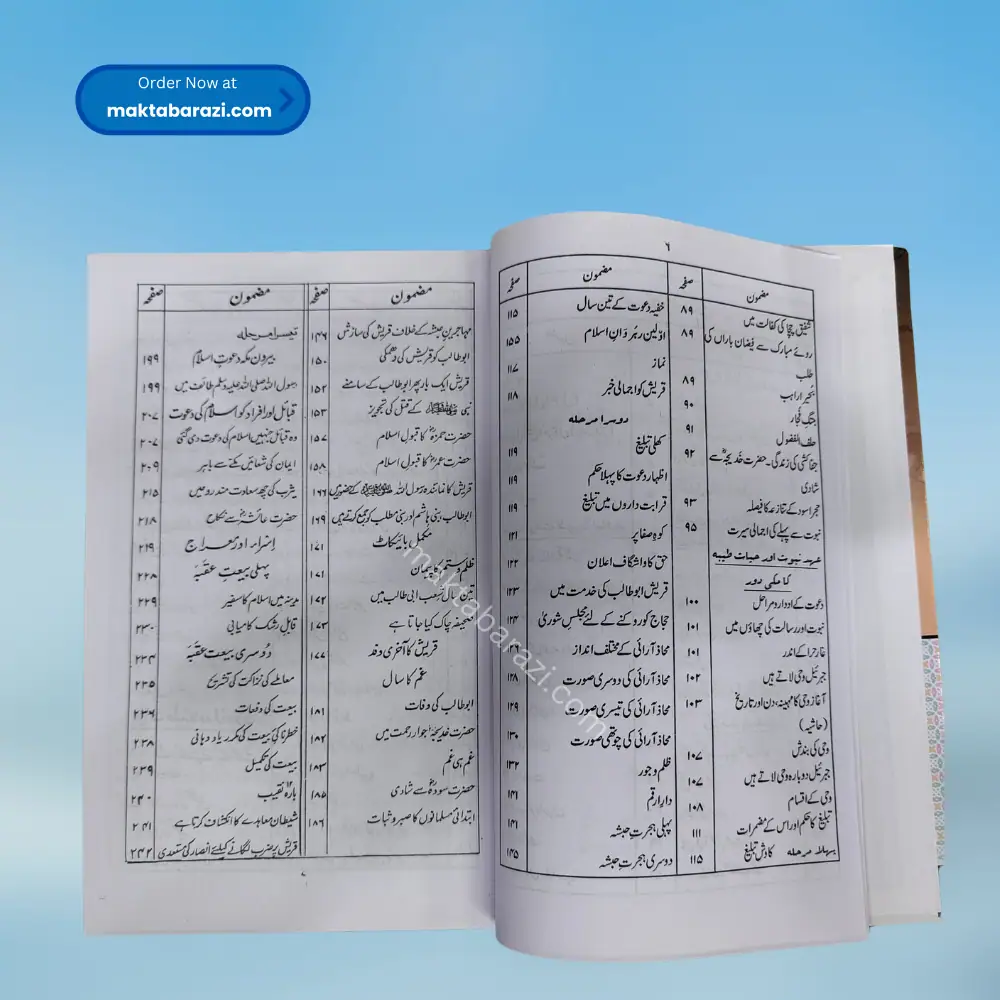 Order Now at
maktabarazi.com
۶
مضمون صفحہ مضمون صفحہ
شفیق چچا کی کفالت میں ۸۹
روئے مبارک سے فیضان باراں کی ۸۹
طلب
بحیرا راہب ۸۹
جنگ فجار ۹۰
حلف الفضول ۹۱
جفاکشی کی زندگی ۔ حضرت خدیجہؓ سے ۹۲
شادی
حجر اسود کے تنازعہ کا فیصلہ ۹۳
نبوت سے پہلے کی اجمالی سیرت ۹۵
عہد نبوت اور حیات طیبہ
کا مکی دور
دعوت کے ادوار و مراحل ۱۰۰
نبوت اور رسالت کی چھاؤں میں ۱۰۱
غار حرا کے اندر ۱۰۱
جبرئیل وحی لاتے ہیں ۱۰۲
آغاز وحی کا مہینہ، دن اور تاریخ ۱۰۳
(حاشیہ)
وحی کی بندش ۱۰۷
جبرئیل دوبارہ وحی لاتے ہیں ۱۰۷
وحی کے اقسام ۱۰۸
تبلیغ کا حکم اور اس کے مضمرات ۱۱۱
پہلا مرحلہ کاوش تبلیغ ۱۱۵
خفیہ دعوت کے تین سال ۱۱۵
اوّلین رہروانِ اسلام ۱۵۵
نماز ۱۱۷
قریش کو اجمالی خبر ۱۱۸
دوسرا مرحلہ
کھلی تبلیغ ۱۱۹
اظہار دعوت کا پہلا حکم ۱۱۹
قرابت داروں میں تبلیغ ۱۱۹
کوہ صفا پر ۱۲۱
حق کا واشگاف اعلان ۱۲۲
قریش ابوطالب کی خدمت میں ۱۲۳
حجاج کو روکنے کے لئے مجلس شوریٰ ۱۲۴
محاذ آرائی کے مختلف انداز ۱۲۶
محاذ آرائی کی دوسری صورت ۱۲۸
محاذ آرائی کی تیسری صورت ۱۲۹
محاذ آرائی کی چوتھی صورت ۱۳۰
ظلم و جور ۱۳۲
دار ارقم ۱۴۱
پہلی ہجرت حبشہ ۱۴۱
دوسری ہجرت حبشہ ۱۴۵
مضمون صفحہ مضمون صفحہ
مہاجرین حبشہ کے خلاف قریش کی سازش ۱۴۶
ابوطالب کو قریش کی دھمکی ۱۵۰
قریش ایک بار پھر ابوطالب کے سامنے ۱۵۲
نبی ﷺ کے قتل کی تجویز ۱۵۳
حضرت حمزہؓ کا قبول اسلام ۱۵۷
حضرت عمرؓ کا قبول اسلام ۱۵۸
قریش کا نمائندہ رسول اللہ ﷺ کے حضور میں ۱۶۶
ابوطالب بنی ہاشم اور بنی مطلب کو جمع کرتے ہیں ۱۶۹
مکمل بائیکاٹ ۱۷۱
ظلم و ستم کا پیمان ۱۷۱
تین سال شعب ابی طالب میں ۱۷۲
صحیفہ چاک کیا جاتا ہے ۱۷۳
قریش کا آخری وفد ۱۷۷
غم کا سال
ابوطالب کی وفات ۱۸۱
حضرت خدیجہؓ جوار رحمت میں ۱۸۲
غم ہی غم ۱۸۳
حضرت سودہؓ سے شادی ۱۸۵
ابتدائی مسلمانوں کا صبر و ثبات ۱۸۶
تیسرا مرحلہ
بیرون مکہ دعوت اسلام ۱۹۹
رسول اللہ صلی اللہ علیہ وسلم طائف میں ۱۹۹
قبائل اور افراد کو اسلام کی دعوت ۲۰۷
وہ قبائل جنہیں اسلام کی دعوت دی گئی ۲۰۷
ایمان کی شعائیں مکے سے باہر ۲۰۹
یثرب کی چھ سعادت مند روحیں ۲۱۵
حضرت عائشہؓ سے نکاح ۲۱۸
اسراء اور معراج ۲۱۹
پہلی بیعت عقبہ ۲۲۸
مدینہ میں اسلام کا سفیر ۲۲۹
قابل رشک کامیابی ۲۳۰
دوسری بیعت عقبہ ۲۳۴
معاملے کی نزاکت کی تشریح ۲۳۵
بیعت کی دفعات ۲۳۶
خطرناکی بیعت کی مکرر یاد دہانی ۲۳۸
بیعت کی تکمیل ۲۳۹
بارہ نقیب ۲۴۰
شیطان معاہدے کا انکشاف کرتا ہے ۲۴۱
قریش پر ضرب لگانے کیلئے انصار کی مستعدی ۲۴۲
۷
maktabarazi.com